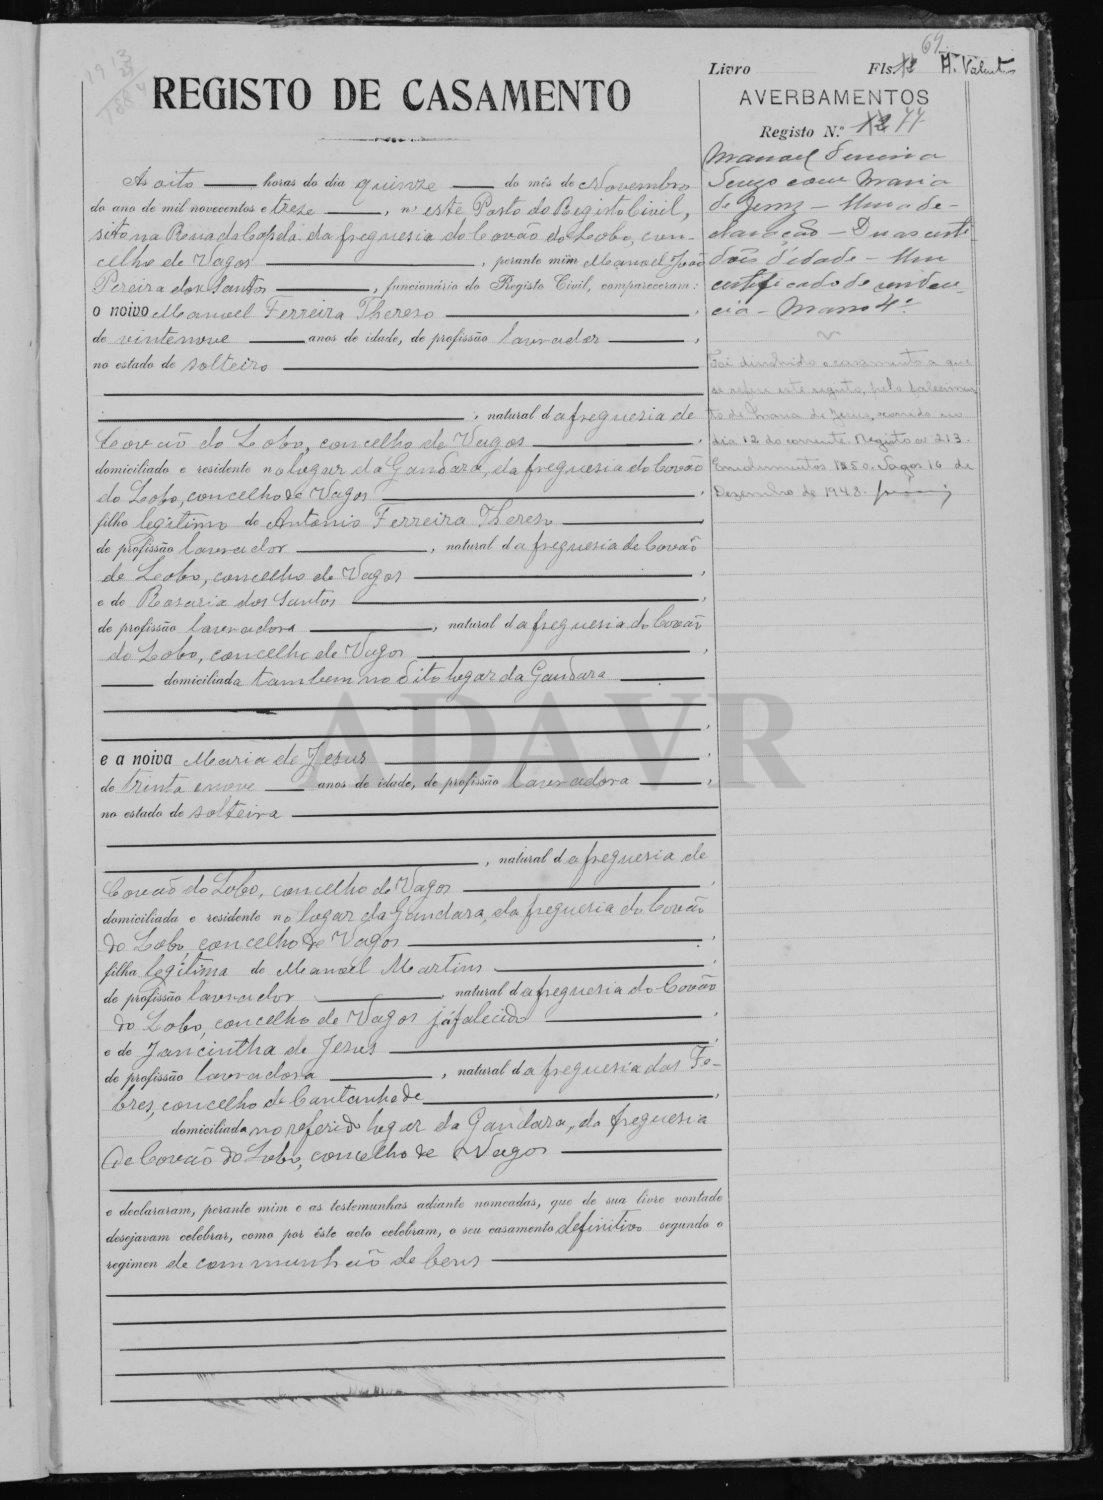 1913
Livro Fls. 69
REGISTO DE CASAMENTO
AVERBAMENTOS
Registo N.º 77
Ás oito horas do dia quinze do mês de Novembro
do ano de mil novecentos e treze, n'este Posto do Registo Civil,
sito na Rua da Capéla da freguesia do Covão do Lobo, con-
celho de Vagos, perante mim Manoel João
Pereira dos Santos, funcionário do Registo Civil, compareceram:
o noivo Manoel Ferreira Thereso,
de vintenove anos de idade, de profissão lavrador,
no estado de solteiro
, natural da freguesia de
Covão do Lobo, concelho de Vagos,
domiciliado e residente no logar da Gandara, da freguesia do Covão
do Lobo, concelho de Vagos,
filho legitimo de Antonio Ferreira Thereso,
de profissão lavrador, natural da freguesia de Covão
de Lobo, concelho de Vagos,
e de Rosaria dos Santos,
de profissão lavradora, natural da freguesia do Covão
do Lobo, concelho de Vagos,
domiciliada tambem no dito logar da Gandara
,
e a noiva Maria de Jesus,
de trinta e nove anos de idade, de profissão lavradora,
no estado de solteira
, natural da freguesia de
Covão do Lobo, concelho de Vagos,
domiciliada e residente no logar da Gandara, da freguesia do Covão
do Lobo, concelho de Vagos,
filha legitima de Manoel Martins,
de profissão lavrador, natural da freguesia do Covão
do Lobo, concelho de Vagos já falecido,
e de Jancintha de Jesus,
de profissão lavradora, natural da freguesia das Fe-
bres, concelho de Cantanhede,
domiciliada no referido logar da Gandara, da freguesia
de Covão do Lobo, concelho de Vagos
e declararam, perante mim e as testemunhas adiante nomeadas, que de sua livre vontade
desejavam celebrar, como por êste acto celebram, o seu casamento definitivo segundo o
regimen de communhão de bens
Manoel
com Maria
de Jesus – Uma de-
claração – Duas certi
d'idade – Um
certificado de
cia – Março 4.º
Foi dissolvido o casamento a que
se refere este registo, pelo falecimen
to de Maria de Jesus, ocorrido no
dia 12 do corrente. Registo nº 213.
Emolumentos 1$50. Vagos 16 de
Dezembro de 1948.
ADAVR